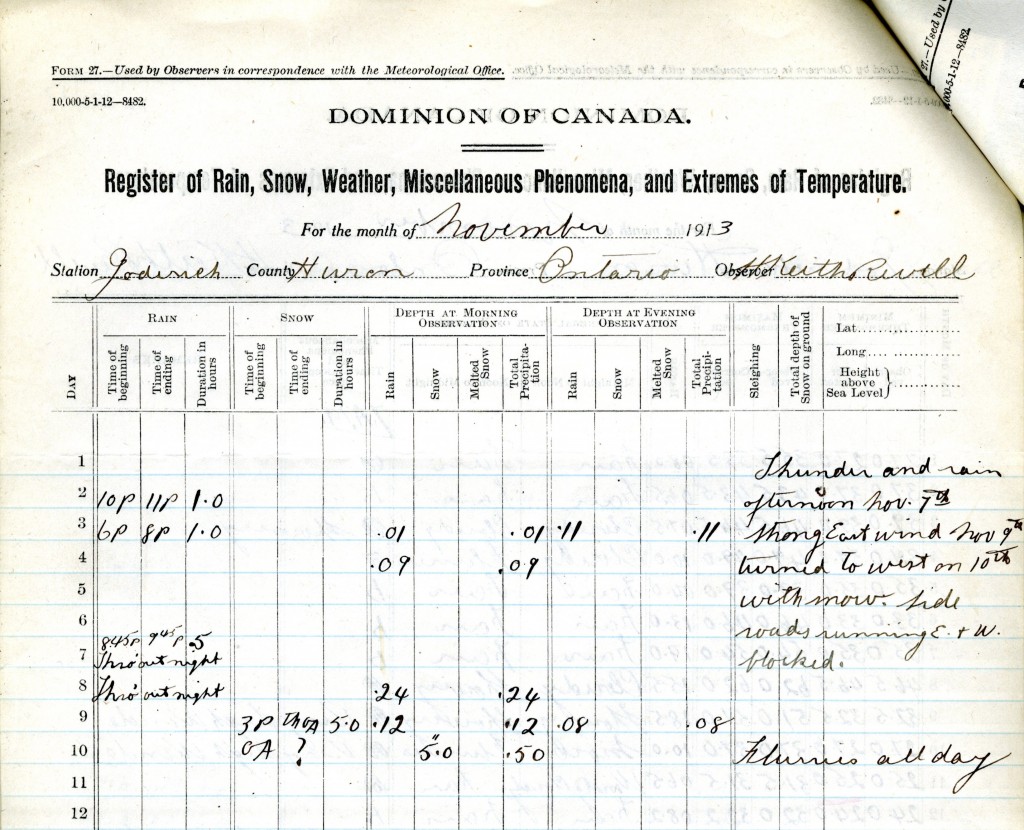 Form 27.—Used by Observers in correspondence with the Meteorological Office.
10,000-5-1-12—8482.
27.—Used by
000-5-1-12—8482.
DOMINION OF CANADA.
Register of Rain, Snow, Weather, Miscellaneous Phenomena, and Extremes of Temperature.
For the month of November 1913
Station Goderich County Huron Province Ontario Observer H Keith Revell
DAY
Rain
Time of beginning
Time of ending
Duration in hours
Snow
Time of beginning
Time of ending
Duration in hours
Depth at Morning Observation
Rain
Snow
Melted Snow
Total Precipita-tion
Depth at Evening Observation
Rain
Snow
Melted Snow
Total Precipi-tation
Sleighing
Total depth of Snow on ground
Lat.
Long.
Height above Sea Level
1 Thunder and rain
2 10P 11P 1.0 afternoon Nov. 7th
3 6P 8P 1.0 .01 .01 .11 .11 Strong East wind Nov 9th
4 .09 .09 turned to west on 10th
5 with snow. Side
6 8 45P 9 45P .5 roads running E. + W.
7 Thro' out night blocked.
8 Thro' out night .24 .24
9 3P 5.0 .12 .12 .08 .08
10 0A ? 5.0" .50 Flurries all day
11
12